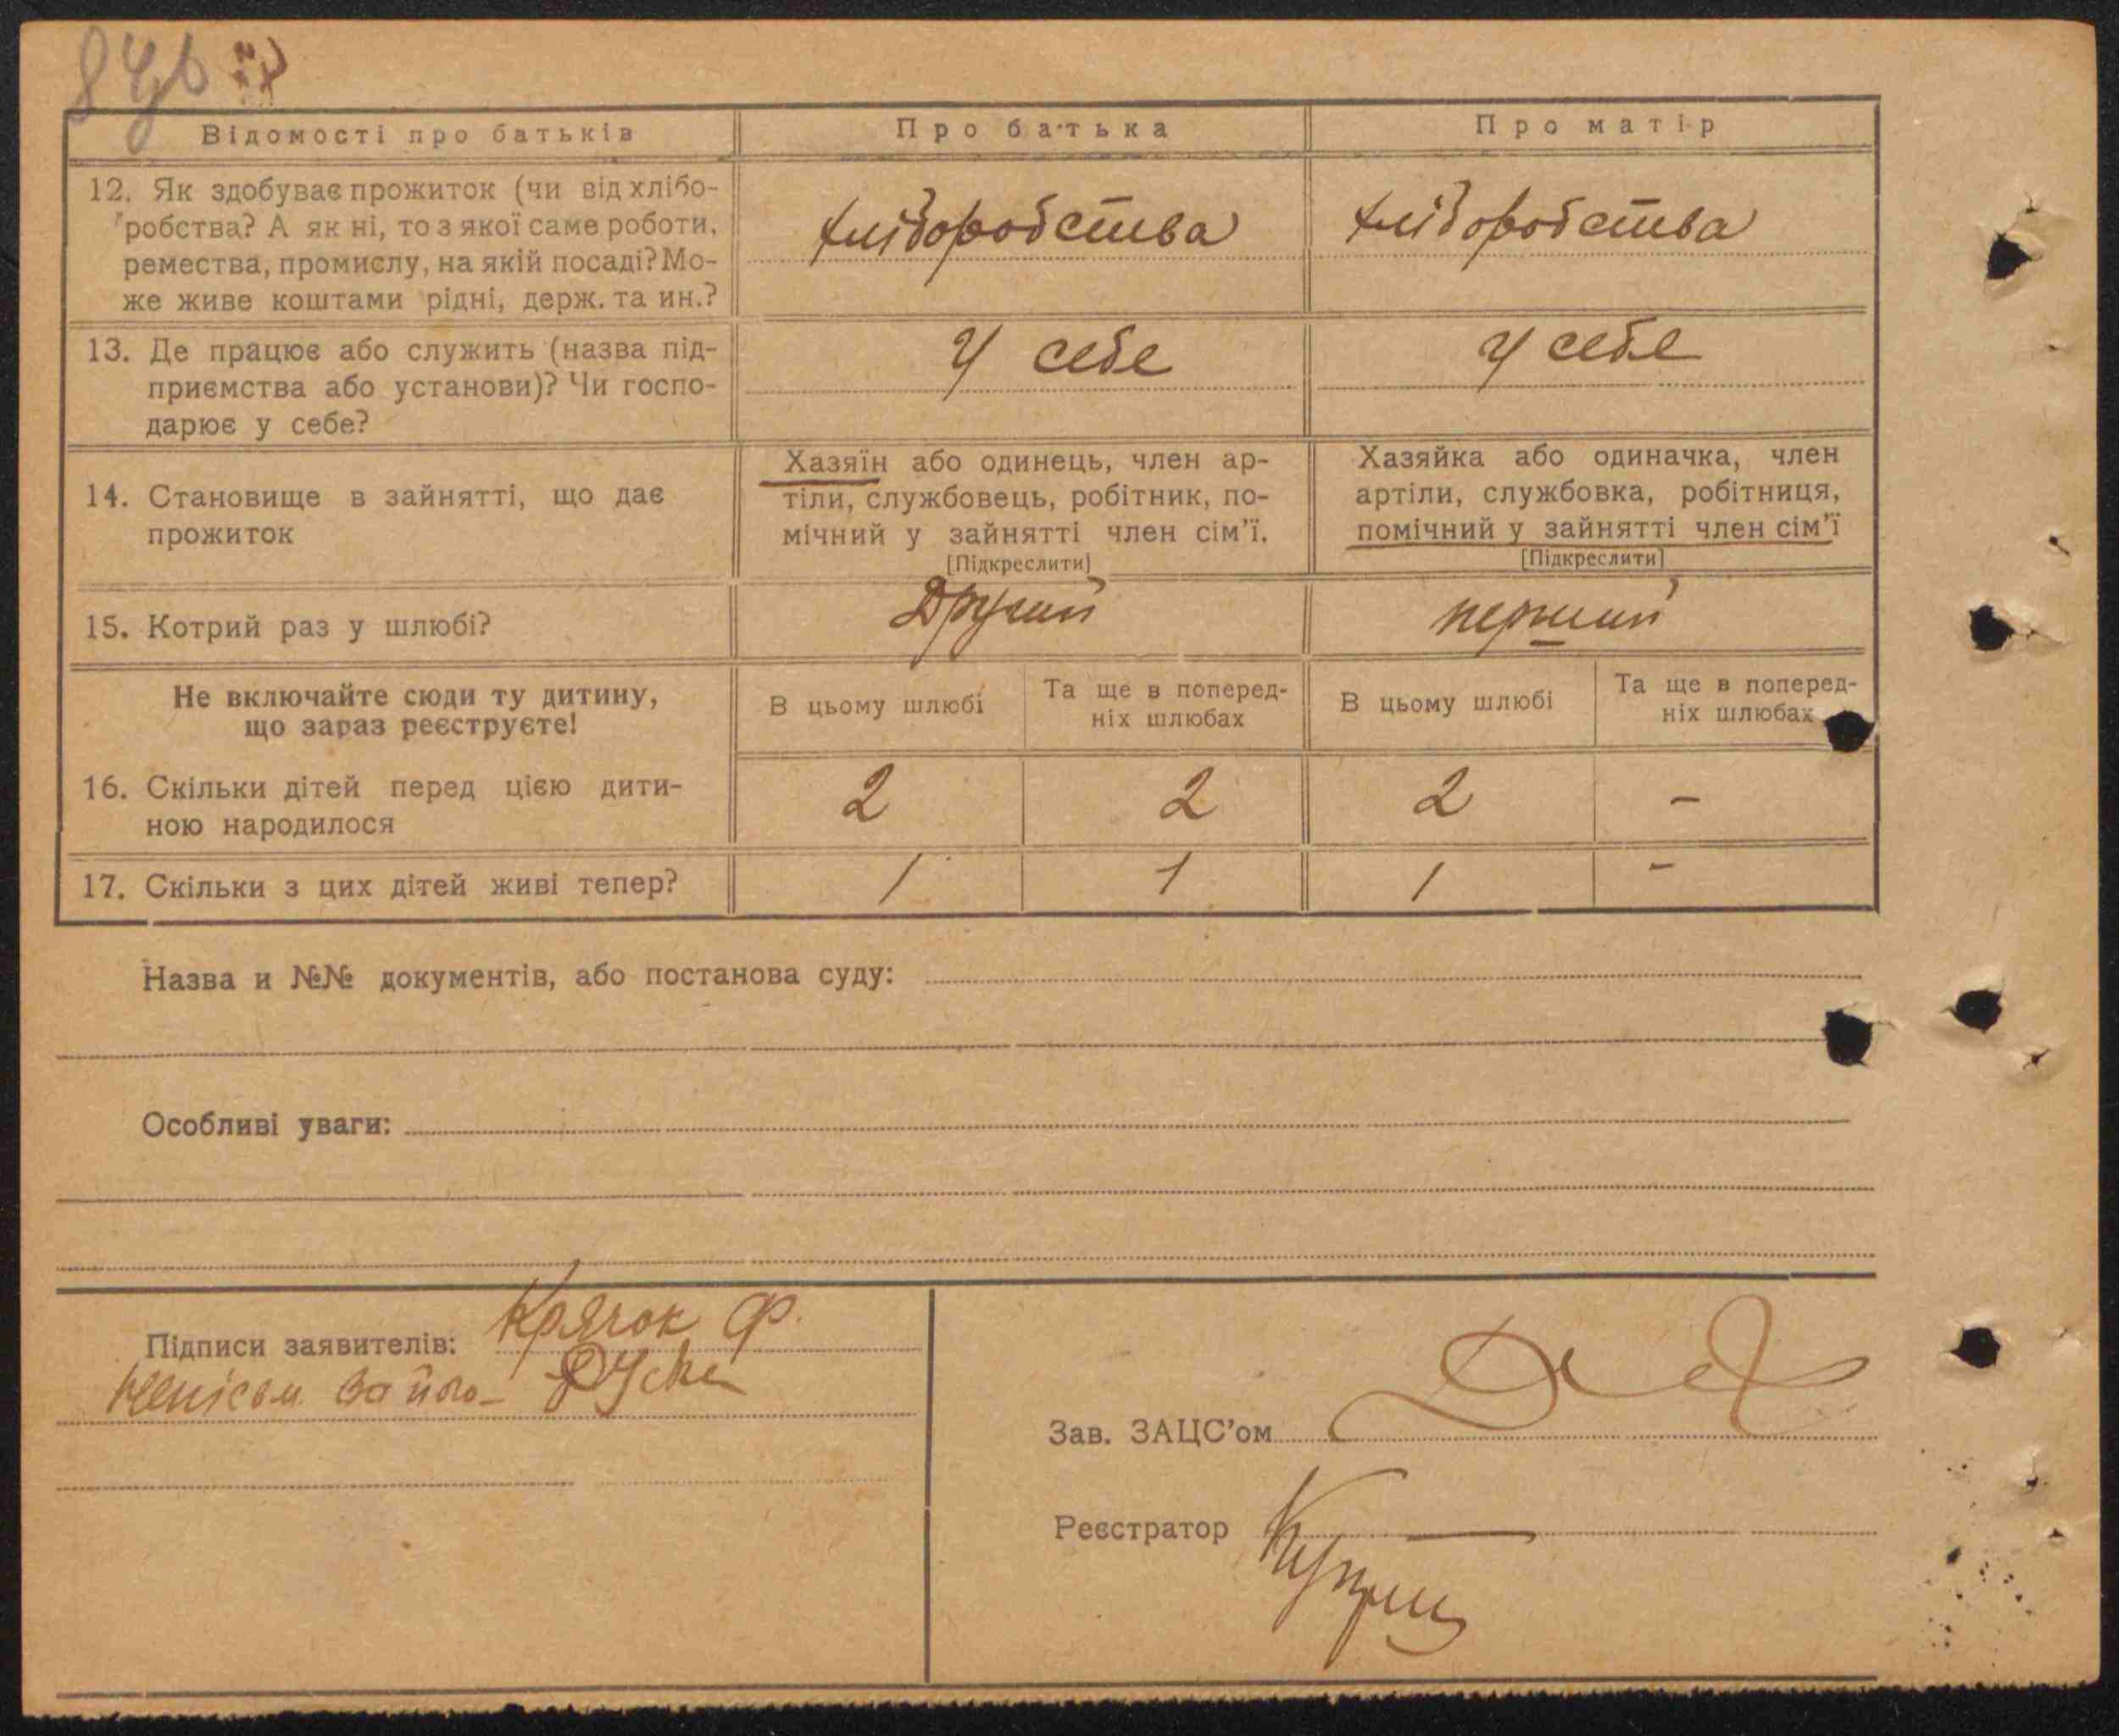 84б
Відомості про батьків Про батька Про матір
12. Як здобуває прожиток (чи від хлібо- хліборобства хліборобства
робства? А як ні, то з якої саме роботи,
ремества, промислу, на якій посаді? Мо-
же живе коштами рідні, держ. та ин.?
13. Де працює або служить (назва під- У себе У себе
приємства або установи)? Чи госпо-
дарює у себе?
14. Становище в зайнятті, що дає
прожиток
Хазяїн або одинець, член ар-
тіли, службовець, робітник, по-
мічний у зайнятті член сім'ї.
[Підкреслити]
Хазяйка або одиначка, член
артіли, службовка, робітниця,
помічний у зайнятті член сім'ї
[Підкреслити]
15. Котрий раз у шлюбі? Другий перший
Не включайте сюди ту дитину,
що зараз реєструєте!
В цьому шлюбі
Та ще в поперед-
ніх шлюбах
В цьому шлюбі
Та ще в поперед-
ніх шлюбах
16. Скільки дітей перед цією дити- 2 2 2 -
ною народилося
17. Скільки з цих дітей живі тепер? 1 1 1 -
Назва и №№ документів, або постанова суду:
Особливі уваги:
Підписи заявителів: Крячок Ф.
Зав. ЗАЦС'ом
Реєстратор